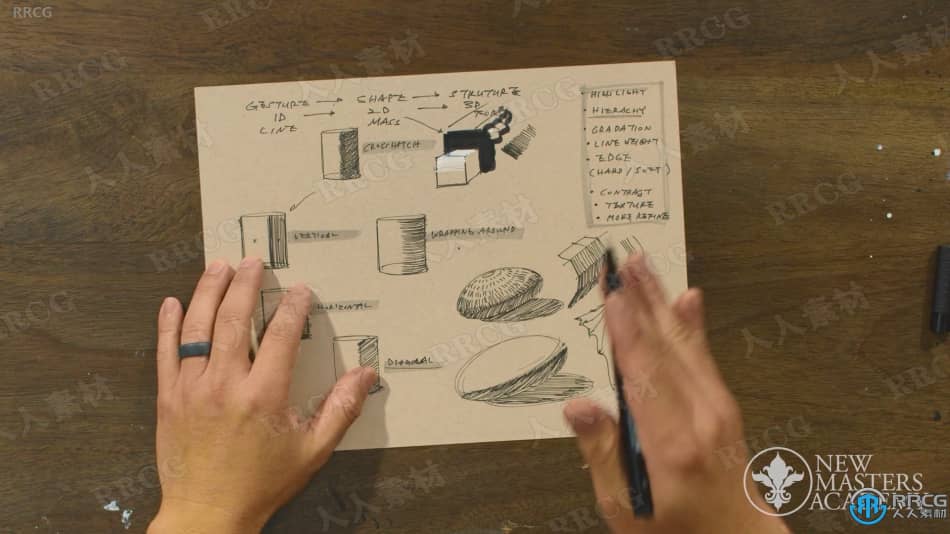 RRCG
GESTURE → SHAPE → STRUTURE
1D → 2D → 3D
LINE MASS FORM
CROSSHATCH
VERTICAL
WRAPPING AROUND
HORIZONTAL
DIAGONAL
HIGHLIGHT
• HIERACHY
• GRADATION
• LINE WEIGHT
• EDGE
(HARD / SOFT)
• CONTRAST
• TEXTURE
• MORE REFINE
NEW
MASTERS
ACADEMY
RRCG
人人素材